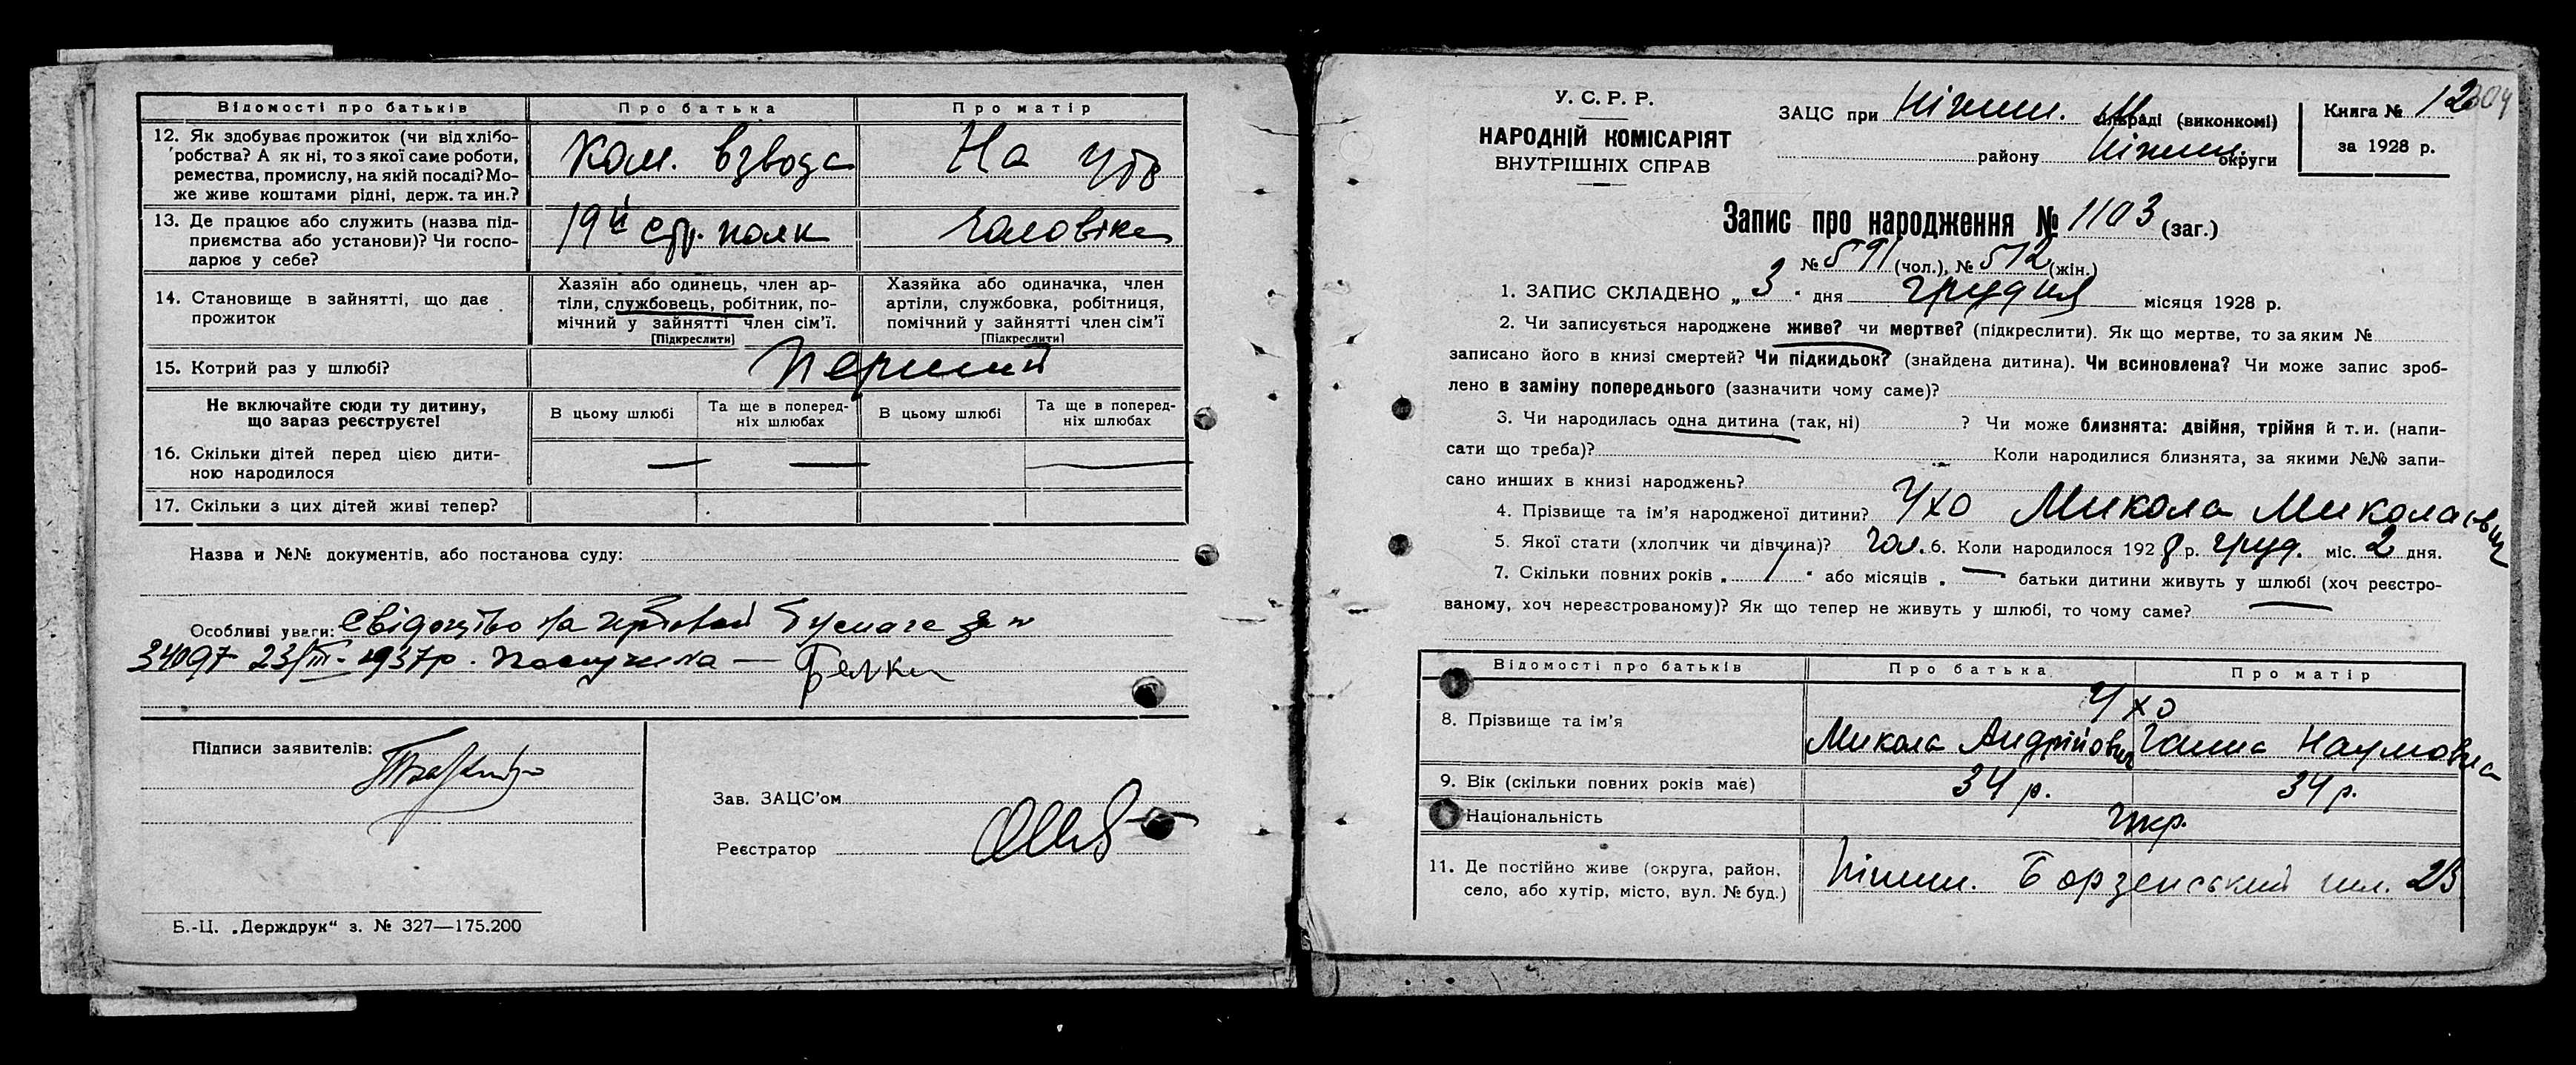 Відомості про батьків Про батька Про матір
12. Як здобуває прожиток (чи від хлібо-
робства? А як ні, то з якої саме роботи,
ремества, промислу, на якій посаді? Мо-
же живе коштами рідні, держ. та ин.?
Ком. взвода На утр
13. Де працює або служить (назва під-
приємства або установи)? Чи госпо-
дарює у себе?
19й стр. полк чоловіка
14. Становище в зайнятті, що дає
прожиток
Хазяїн або одинець, член ар-
тіли, службовець, робітник, по-
мічний у зайнятті член сім'ї.
[Підкреслити]
Хазяйка або одиначка, член
артіли, службовка, робітниця,
помічний у зайнятті член сім'ї
[Підкреслити]
15. Котрий раз у шлюбі? перший
Не включайте сюди ту дитину,
що зараз реєструєте!
В цьому шлюбі Та ще в поперед-
ніх шлюбах В цьому шлюбі Та ще в поперед-
ніх шлюбах
16. Скільки дітей перед цією дити-
ною народилося — — —
17. Скільки з цих дітей живі тепер?
Назва и №№ документів, або постанова суду:
Особливі уваги: Свідоцтво на гербовой бумаге за №
34097 23/III - 1937р. получила —
Підписи заявителів:
Зав. ЗАЦС'ом
Реєстратор
Б.-Ц. „Держдрук“ з. № 327—175.200
У. С. Р. Р.
НАРОДНІЙ КОМІСАРІЯТ
ВНУТРІШНІХ СПРАВ
ЗАЦС при Ніжин. М. сільраді (виконкомі)
району Ніжин. округи
Книга № 12 304
за 1928 р.
Запис про народження № 1103 (заг.)
№ 591 (чол.), № 512 (жін.)
1. ЗАПИС СКЛАДЕНО „ 3 “ дня грудня місяця 1928 р.
2. Чи записується народжене живе? чи мертве? (підкреслити). Як що мертве, то за яким №
записано його в книзі смертей? Чи підкидьок? (знайдена дитина). Чи всиновлена? Чи може запис зроб-
лено в заміну попереднього (зазначити чому саме)?
3. Чи народилась одна дитина (так, ні) ? Чи може близнята: двійня, трійня й т. и. (напи-
сати що треба)? Коли народилися близнята, за якими №№ запи-
сано инших в книзі народжень?
4. Прізвище та ім'я народженої дитини? Ухо Микола Миколаєвич
5. Якої стати (хлопчик чи дівчина)? чол. 6. Коли народилося 1928 р. груд. міс. 2 дня.
7. Скільки повних років „ 1 “ або місяців „ — батьки дитини живуть у шлюбі (хоч реєстро-
ваному, хоч нереєстрованому)? Як що тепер не живуть у шлюбі, то чому саме?
Відомості про батьків Про батька Про матір
8. Прізвище та ім'я Ухо
Микола Андрійович Ганна Наумовна
9. Вік (скільки повних років має) 34 р. 34 р.
Національність Укр.
11. Де постійно живе (округа, район,
село, або хутір, місто, вул. № буд.)
Ніжин. Борзенський шл. 23